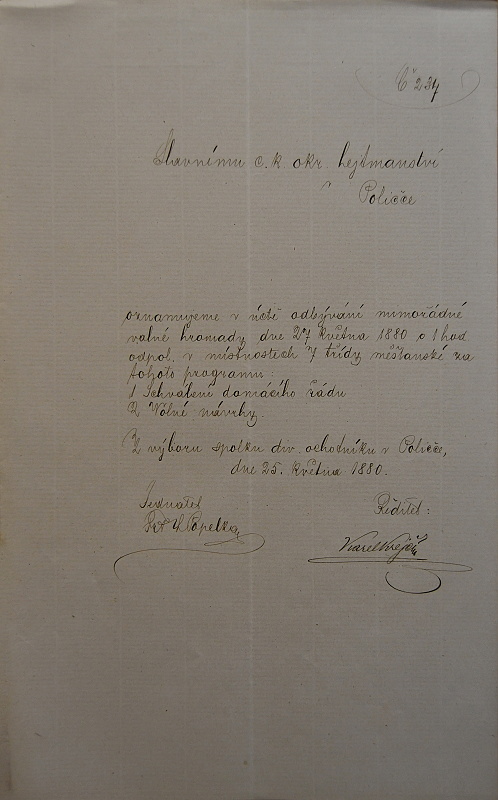 Č 234
Slavnému c. k. okr. hejtmanství
v Poličce
oznamujeme v úctě odbývání mimořádné
valné hromady dne 27 května 1880 o 1 hod
odpol. v místnostech 7 třídy měšťanské za
tohoto programu:
1 Schválení domácího řádu
2 Volné návrhy.
Z výboru spolku div. ochotníku v Poličce,
dne 25. května 1880.
Jednatel
Popelka
Ředitel:
Karel Krejčí